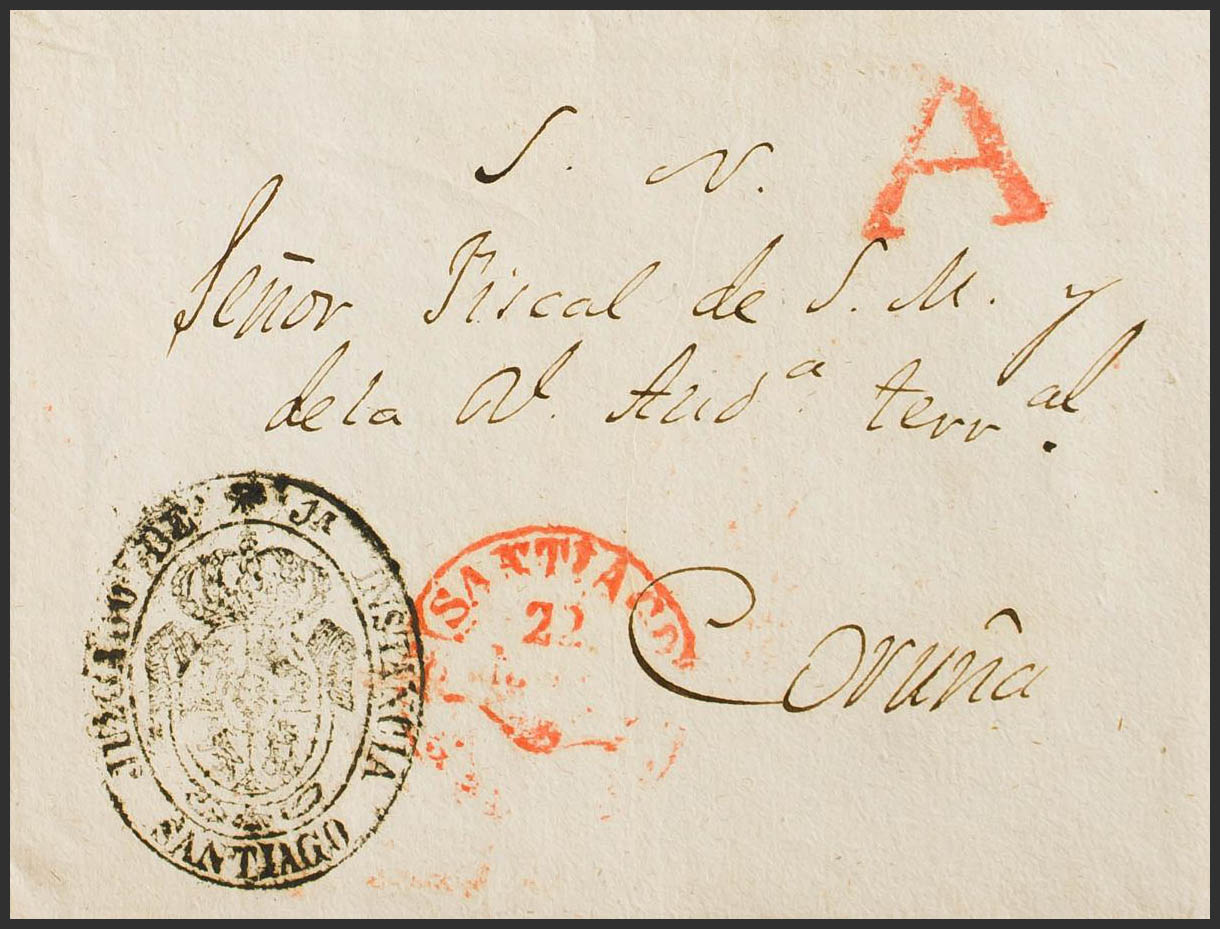 A
S. N.
Señor Fiscal de S. M. y
de la Aud.ª terr.al
Coruña
JUZGADO DE 1A INSTANCIA
SANTIAGO
SANTIAGO
22